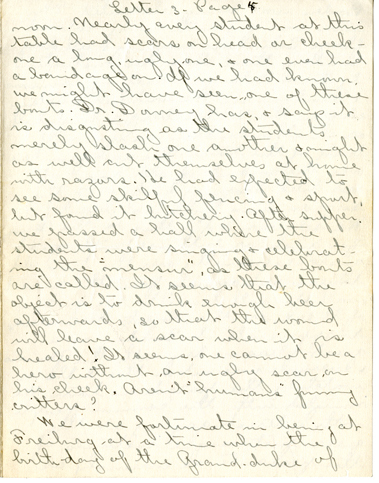 Letter 3 - Page 5
noon. Nearly every student at this
table had scars on head or cheek -
one a long, ugly one, & one even had
a bandage on. If we had known
we might have seen one of these
bouts. Dr. Downey has, & says it
is disgusting as the students
merely slash one another & might
as well cut themselves at home
with razors. He had expected to
see some skillful fencing & sport,
but found it butchery. After supper
we passed a hall where the
students were singing & celebrat-
ing the "mensur", as these bouts
are called. It seems that the
object is to drink enough beer
afterwards, so that the wound
will leave a scar when it is
healed! It seems, one cannot be a
hero without an ugly scar on
his cheek. Aren't "humans" funny
critters?
We were fortunate in being at
Freiburg at a time when the
birthday of the Grand-duke of